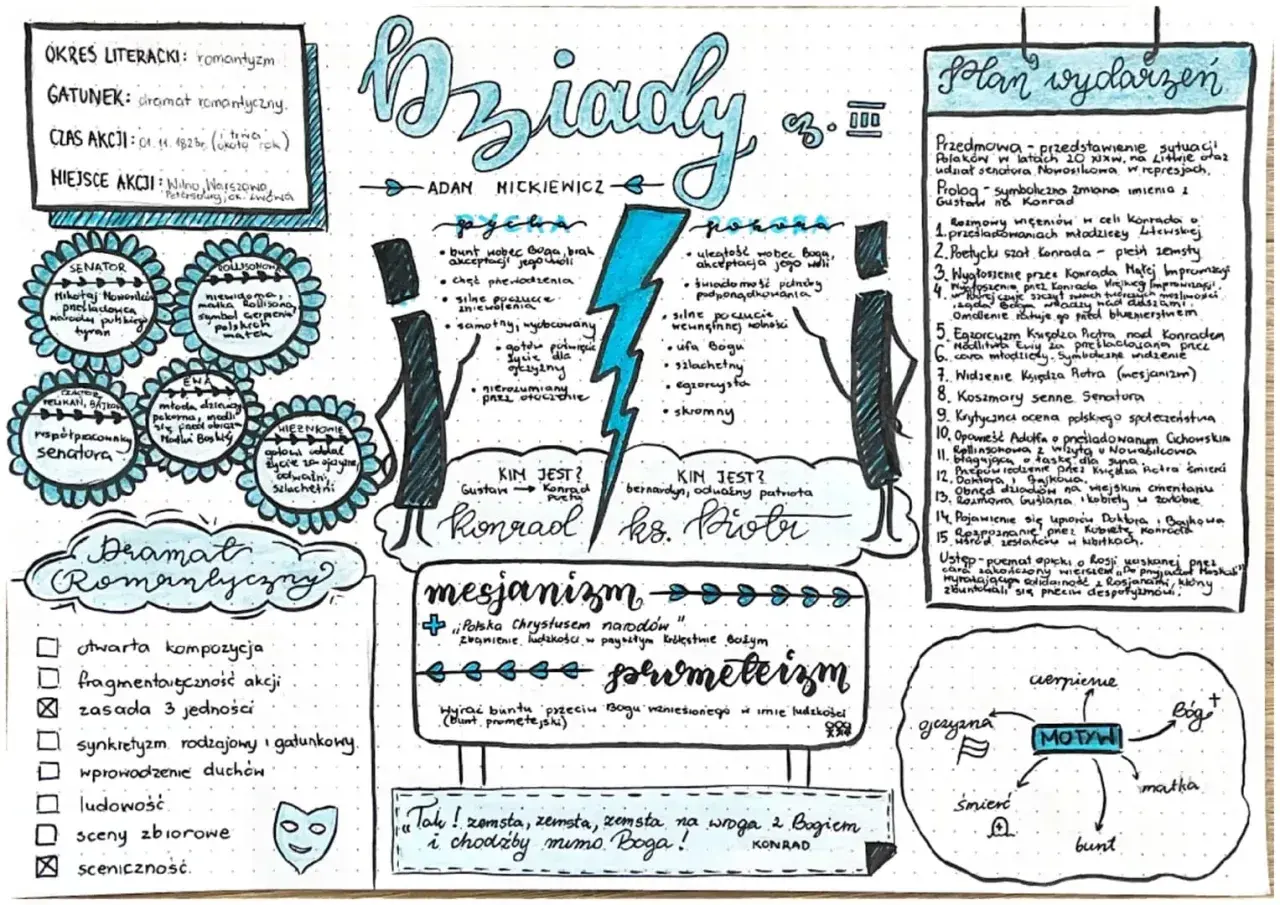 OKRES LITERACKI: romantyzm
GATUNEK: dramat romantyczny.
CZAS AKCJI: 01.11.1823r. (i trwa około rok)
MIEJSCE AKCJI: Wilno, Warszawa,
Petersburg, ok. Lwowa
Dziady cz. III
ADAM MICKIEWICZ
SENATOR
Mikołaj Nowosilcow
prześladowca
narodu polskiego
tyran
ROLLISONOWA
niewidoma,
matka Rollisona,
symbol cierpienia
polskich
matek
PELIKAN, BAJKOW
współpracownicy
senatora
EWA
młoda dziewczy
pokorna, modli
się przed obraz
Matki Boskiej
WIĘŹNIOWIE
gotowi oddać
życie za ojczyznę,
odważni,
szlachetni
PYCHA
• bunt wobec Boga, brak
akceptacji jego woli
• chęć przewodzenia
• silne poczucie
zniewolenia
• samotny, wyobcowany
• gotów poświęcić
życie dla
ojczyzny
• nierozumiany
przez otoczenie
POKORA
• uległość wobec Boga,
akceptacja jego woli
• świadomość potrzeby
podporządkowania
• silne poczucie
wewnętrznej wolności
• ufa Bogu
• szlachetny
• egzorcysta
• skromny
KIM JEST?
Gustaw → Konrad
poeta
Konrad
KIM JEST?
bernardyn, odważny patriota
ks. Piotr
Dramat
Romantyczny
otwarta kompozycja
fragmentaryczność akcji
zasada 3 jedności
synkretyzm rodzajowy i gatunkowy.
wprowadzenie duchów
ludowość
sceny zbiorowe
sceniczność.
mesjanizm
"Polska Chrystusem narodów"
zbawienie ludzkości w przyszłym Królestwie Bożym
prometeizm
Wyraz buntu przeciw Bogu wzniesionego w imię ludzkości
(bunt prometejski)
"Tak! zemsta, zemsta, zemsta na wroga z Bogiem
i choćby mimo Boga!
KONRAD
Plan wydarzeń
Przedmowa - przedstawienie sytuacji
Polaków w latach 20 XIXw. na Litwie oraz
udział senatora Nowosilcowa w represjach.
Prolog - symboliczna zmiana imienia z
Gustaw na Konrad
Rozmowy więźniów w celi Konrada o
1. prześladowaniach młodzieży Litewskiej
2. Poetycki szał Konrada - pieśń zemsty
3. Wygłoszenie przez Konrada Małej Improwizacji
4. Wygłoszenie przez Konrada Wielkiej Improwizacji,
w której czuje szczyt swoich twórczych możliwości
i żąda Bogu władzy nad duszami.
Omdlenie ratuje go przed bluźnierstwem
5. Egzorcyzm Księdza Piotra nad Konradem
Modlitwa Ewy za prześladowaną przez
6. cara młodzież. Symboliczne widzenie
7. Widzenie Księdza Piotra (mesjanizm)
8. Koszmary senne Senatora
9. Krytyczna ocena polskiego społeczeństwa
10. Opowieść Adolfa o prześladowanym Cichowskim
11. Rollinsonowa z wizytą u
błagająca o łaskę dla syna
Przepowiedzenie przez Księdza Piotra śmierci
12. Doktora i Bajkowa.
Obrzęd dziadów na wiejskim cmentarzu
13. Rozmowa Guślarza i kobiety w żałobie
14. Pojawienie się upiorów Doktora i Bajkowa
15. Rozpoznanie przez Kobietę Konrada
wśród zesłańców w kibitkach.
Ustęp - poemat epicki o Rosji uciskanej przez
cara zakończony wierszem "Do przyjaciół Moskali"
wyrażającym solidarność z Rosjanami, którzy
zbuntowali się przeciw despotyzmowi.
cierpienie
ojczyzna
Bóg
MOTYW
śmierć
matka
bunt